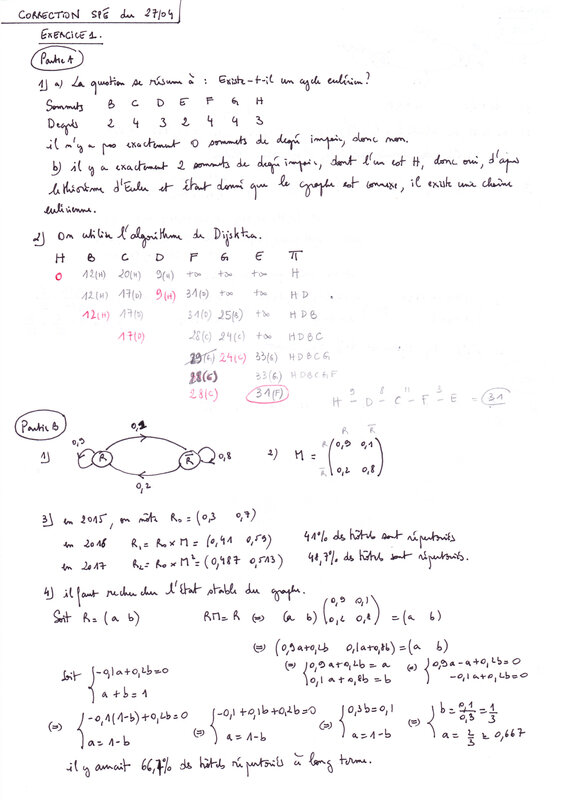 CORRECTION SPÉ du 27/04
EXERCICE 1.
Partie A
1) a) La question se résume à : Existe-t-il un cycle eulérien?
Sommets B C D E F G H
Degrés 2 4 3 2 4 4 3
il n'y a pas exactement 0 sommets de degré impair, donc non.
b) il y a exactement 2 sommets de degré impair, dont l'un est H, donc oui, d'après
le théorème d'Euler et étant donné que le graphe est connexe, il existe une chaîne
eulérienne.
2) On utilise l'algorithme de Dijsktra.
H B C D F G E Π
0 12(H) 20(H) 9(H) +∞ +∞ +∞ H
12(H) 17(D) 9(H) 31(D) +∞ +∞ H D
12(H) 17(D) 31(D) 25(B) +∞ H D B
17(D) 28(C) 24(C) +∞ H D B C
24(C) 33(G) H D B C G
33(G) H D B C G F
28(C) 31(F)
H -9- D -8- C -11- F -3- E = 31
Partie B
1) 0,9 R R̅ 0,8 0,2
2) M = R R̅ R R̅ (0,9 0,1
0,2 0,8)
3) en 2015, on note R₀ = (0,3 0,7)
en 2016 R₁ = R₀ × M = (0,41 0,59) 41% des hôtels sont répertoriés
en 2017 R₂ = R₀ × M² = (0,487 0,513) 48,7% des hôtels sont répertoriés.
4) il faut rechercher l'état stable du graphe.
Soit R = (a b) RM = R ⇔ (a b) (0,9 0,1
0,2 0,8) = (a b)
⇔ (0,9a+0,2b 0,1a+0,8b) = (a b)
Soit { -0,1a+0,2b=0 ⇔ { 0,9a+0,2b = a ⇔ { 0,9a-a+0,2b=0
a+b=1 0,1a+0,8b = b -0,1a+0,2b=0
⇔ { -0,1(1-b)+0,2b=0 ⇔ { -0,1+0,1b+0,2b=0 ⇔ { 0,3b=0,1 ⇔ { b = 0,1/0,3 = 1/3
a=1-b a=1-b a=1-b a = 2/3 ≈ 0,667
il y aurait 66,7% des hôtels répertoriés à long terme.